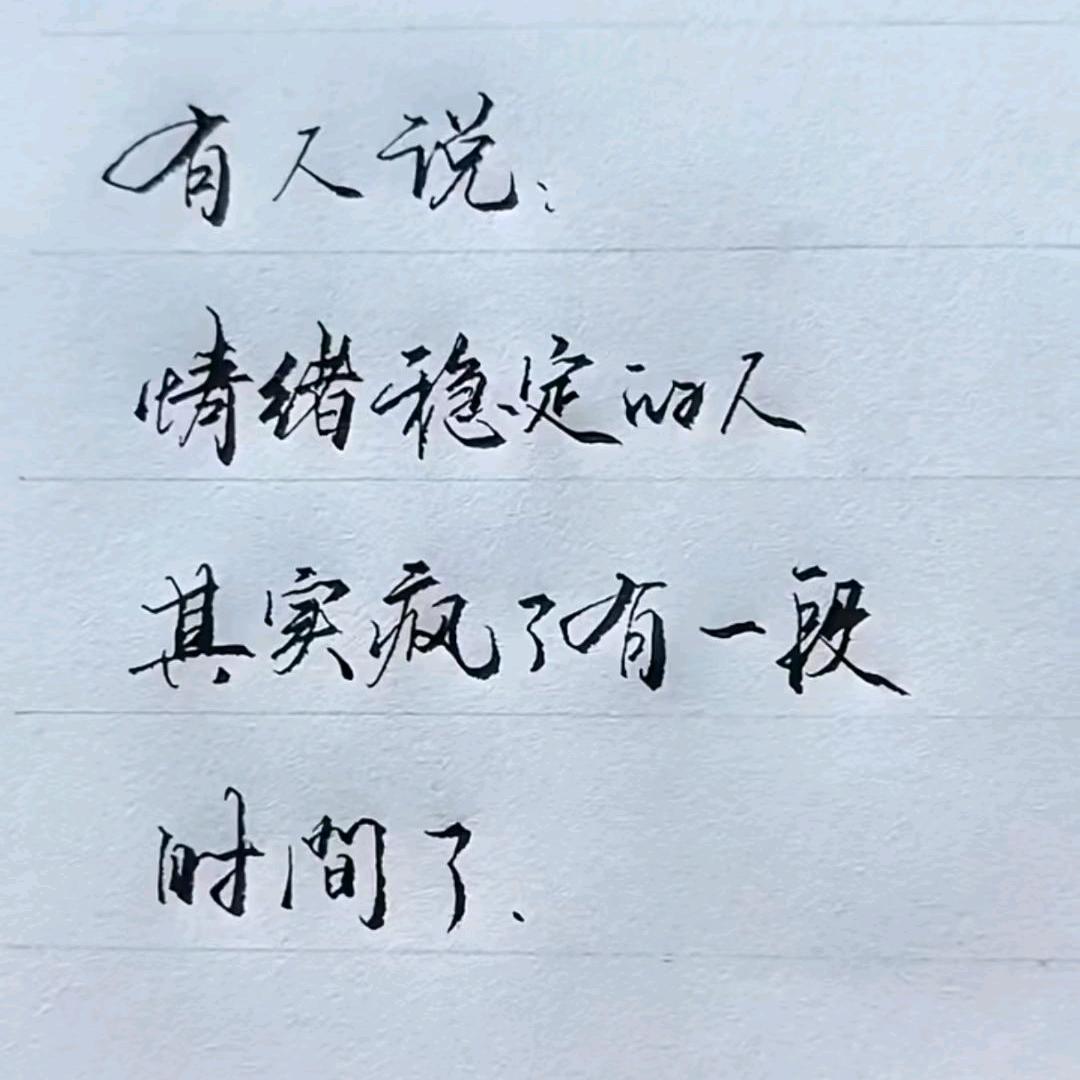 有人说：
情绪稳定的人
其实疯了有一段
时间了.